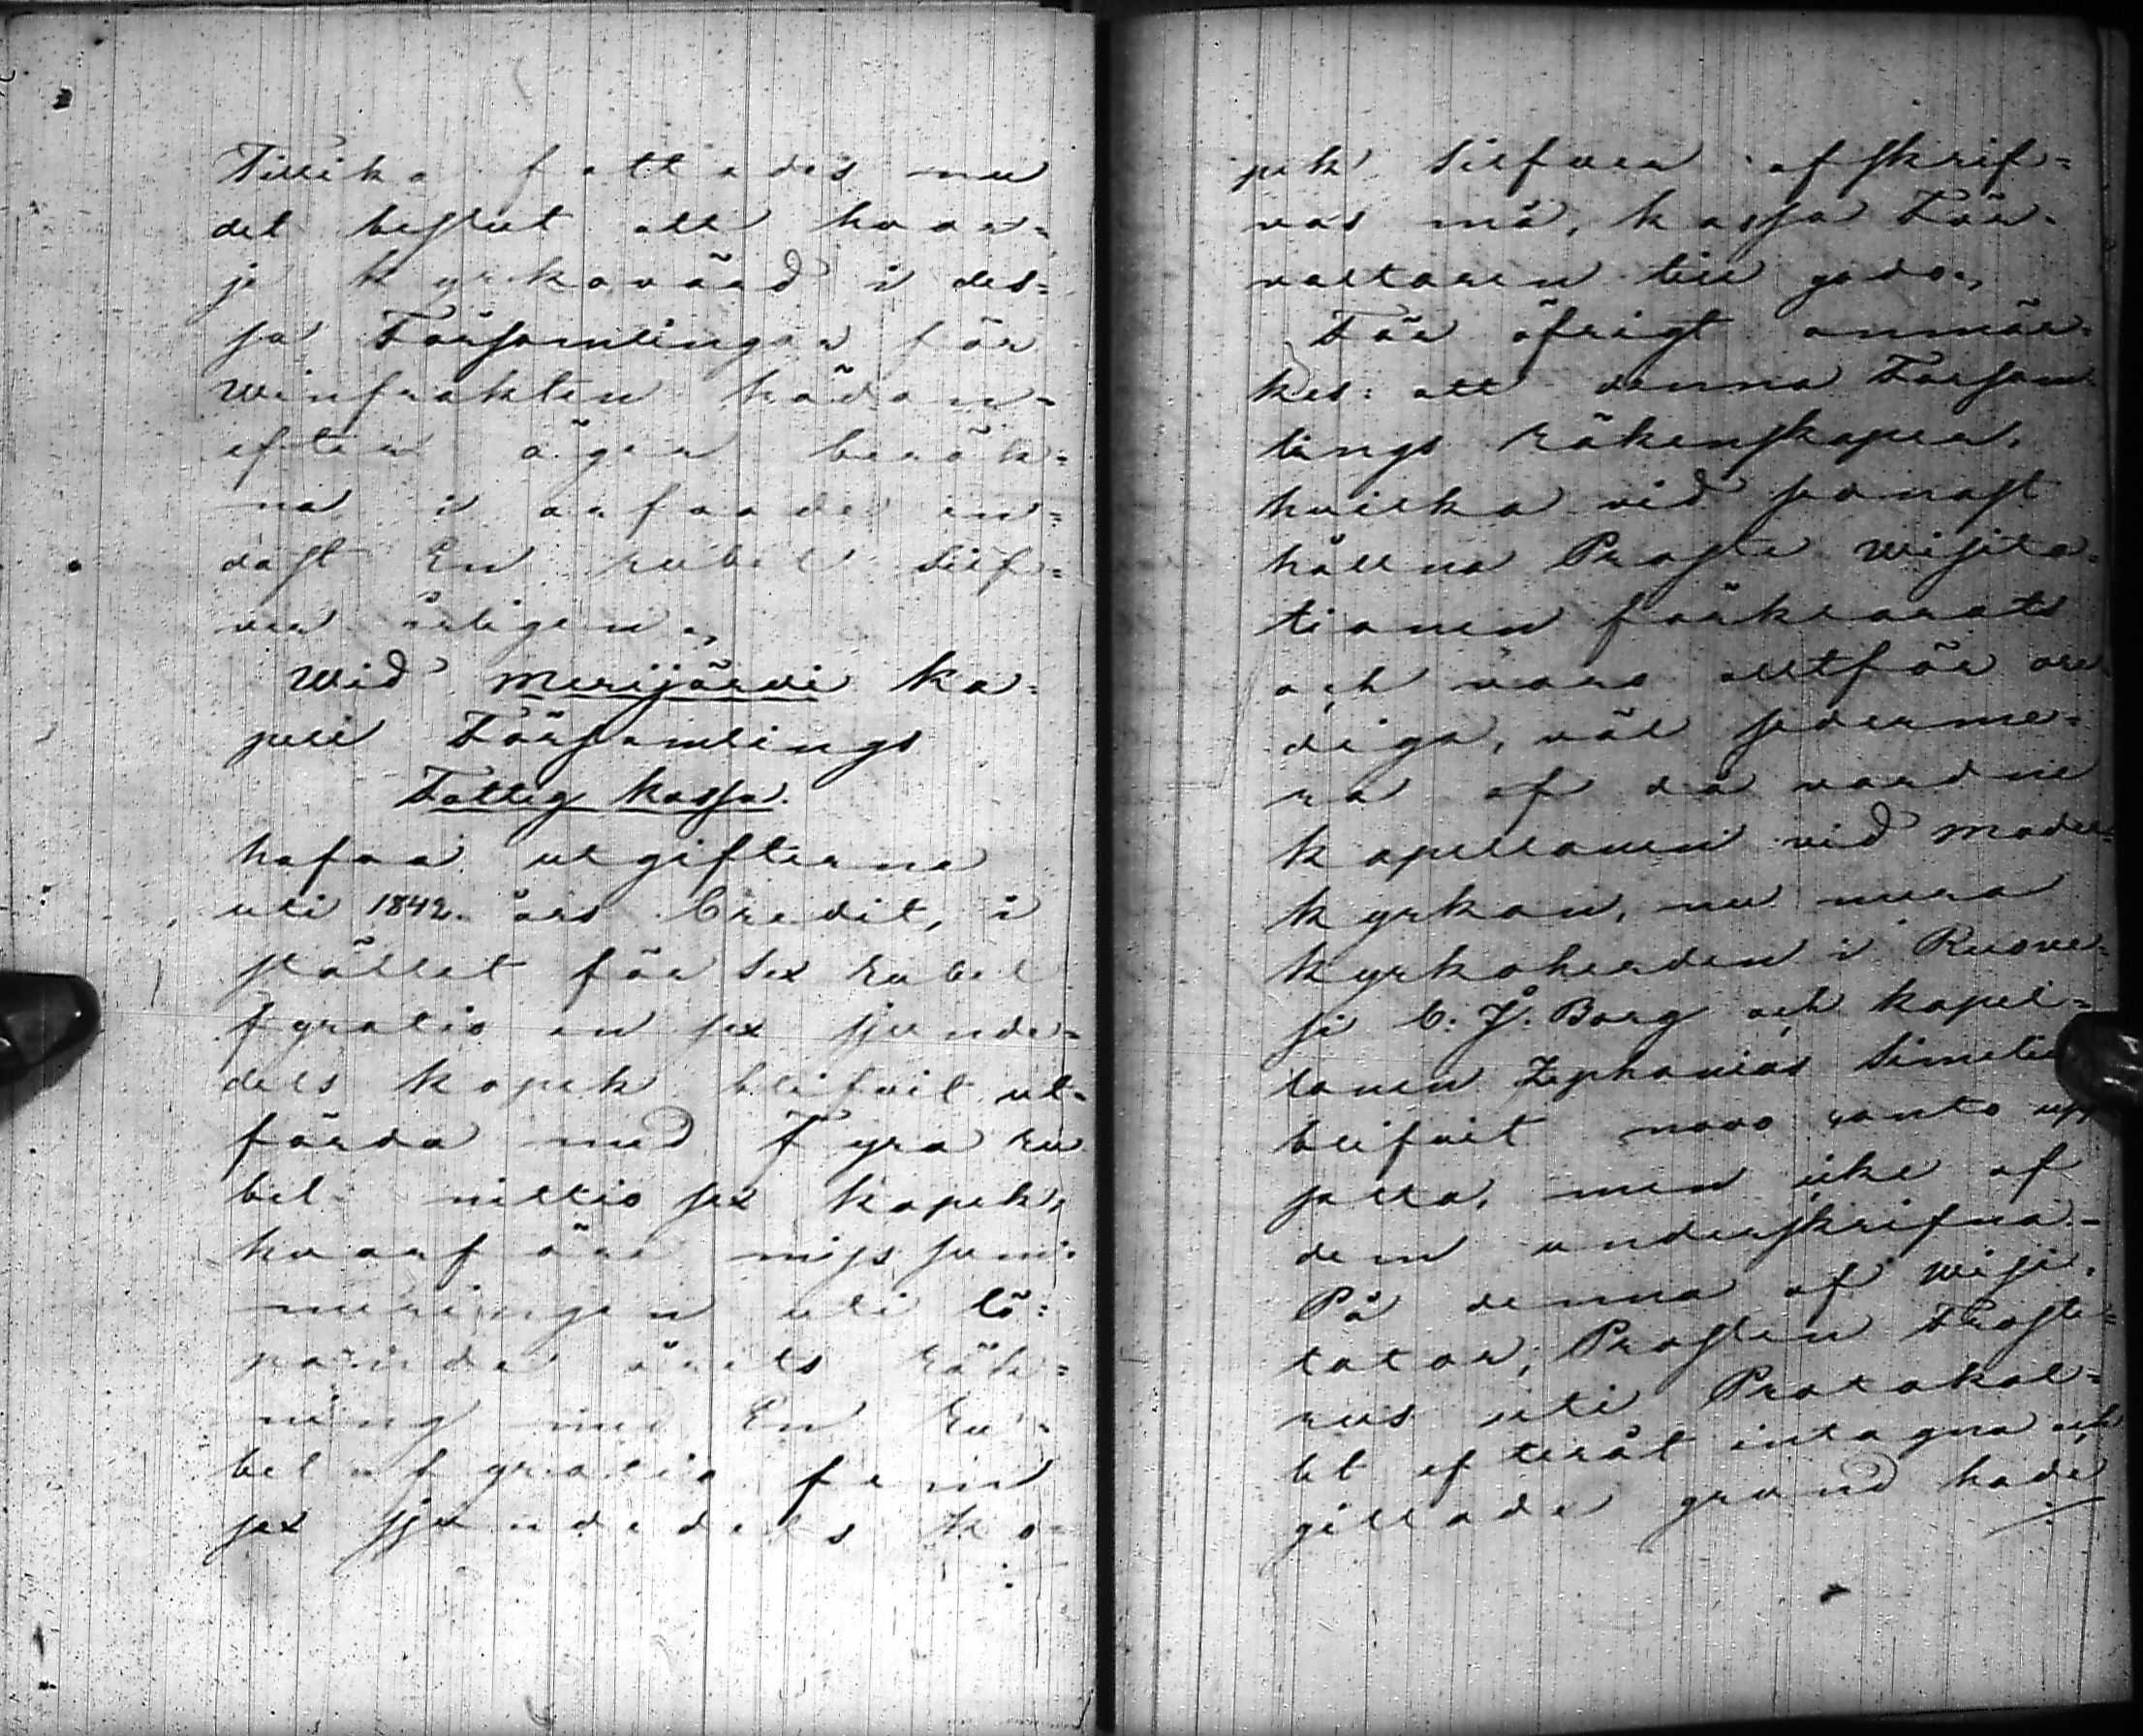 Tillika fattades nu
det beslut att hvar=
je kyrkovärd i des=
sa Församlingar för
winfrakten hädan=
efter äger beräk=
na i arfvode en=
dast En rubel Silf=
ver årligen.,
Wid Merijärvi Ka=
pell Församlings
Fattig Kassa.
hafva utgifterna
uti 1842. års Credit, i
stället för Sex Rubel
fyratio en sex sjunde=
dels kopek blifvit ut=
förda med Fyra ru
bel nittio sex kopek;
hvarföre miss sum=
meringen uti lö=
pande årets Räk=
ning med En Ru=
bel fyratio fem
sex sjundedels ko=
pek Silfver afskrif=
vas må, kassa För=
valtaren till godo.,
För öfrigt anmär=
kes: att denna Försam
lings räkenskaper,
hvilka vid senast
hållna Prosta Wisita=
tionen förklarats
och voro alltför ore=
diga, väl sederme=
ra af då varande
kapellanen vid Moder=
kyrkan, nu mera
kyrkoherden i Ruove=
si C. J. Borg och kapel=
lanen Zephanias Simeli
blifvit novo conto upp
ställa, men icke af
dem underskrifna.-
På denna af Wisi=
tator, Prosten Froste=
rus uti Protokol=
let efteråt intagna och
gillade grund hade